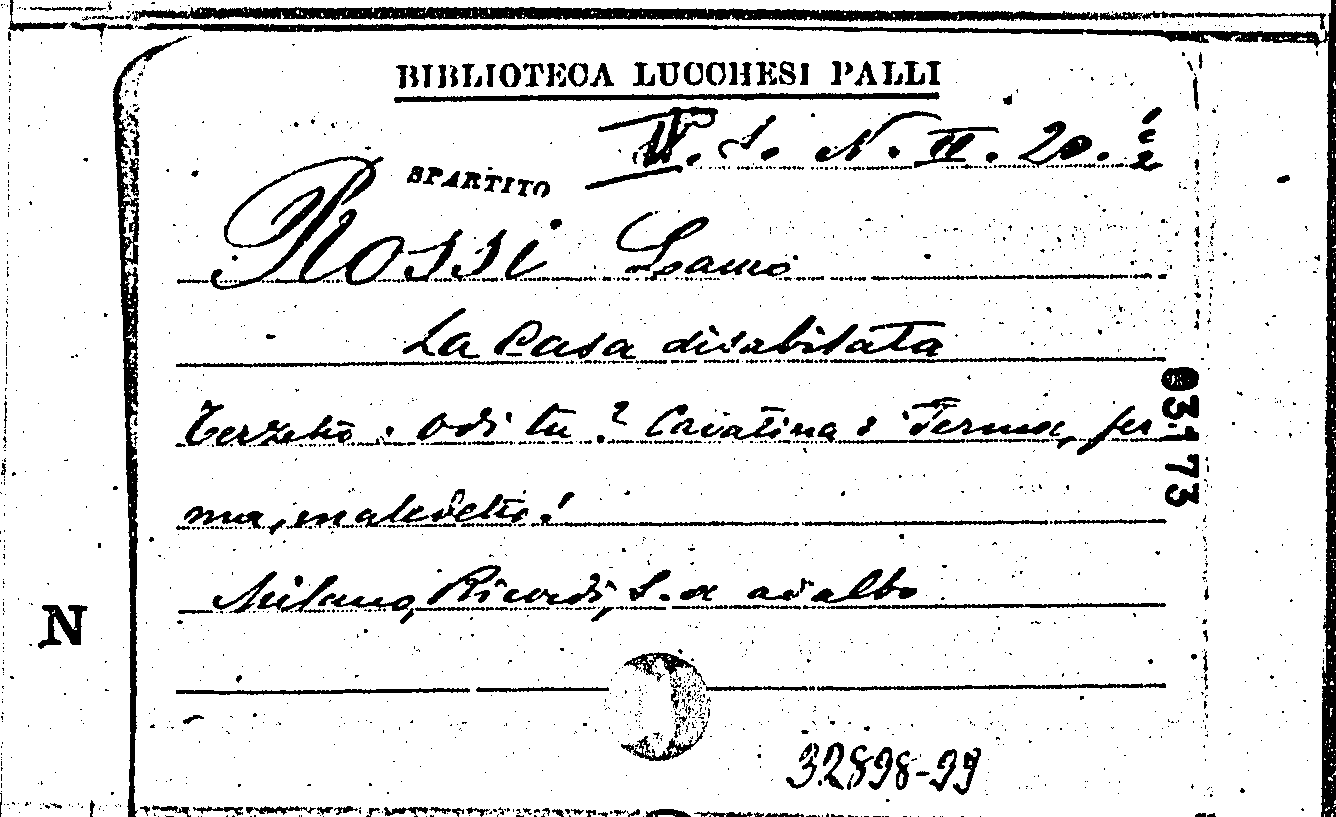 BIBLIOTECA LUCCHESI PALLI
S. N. II. 20.
SPARTITO
Rossi Lauro
La Casa disabitata
Terzetto: Odi tu? Cavatina: Ferma, fer
ma, maledetto!
Milano, Ricordi, S. a ad albo
03173
N
32898-99